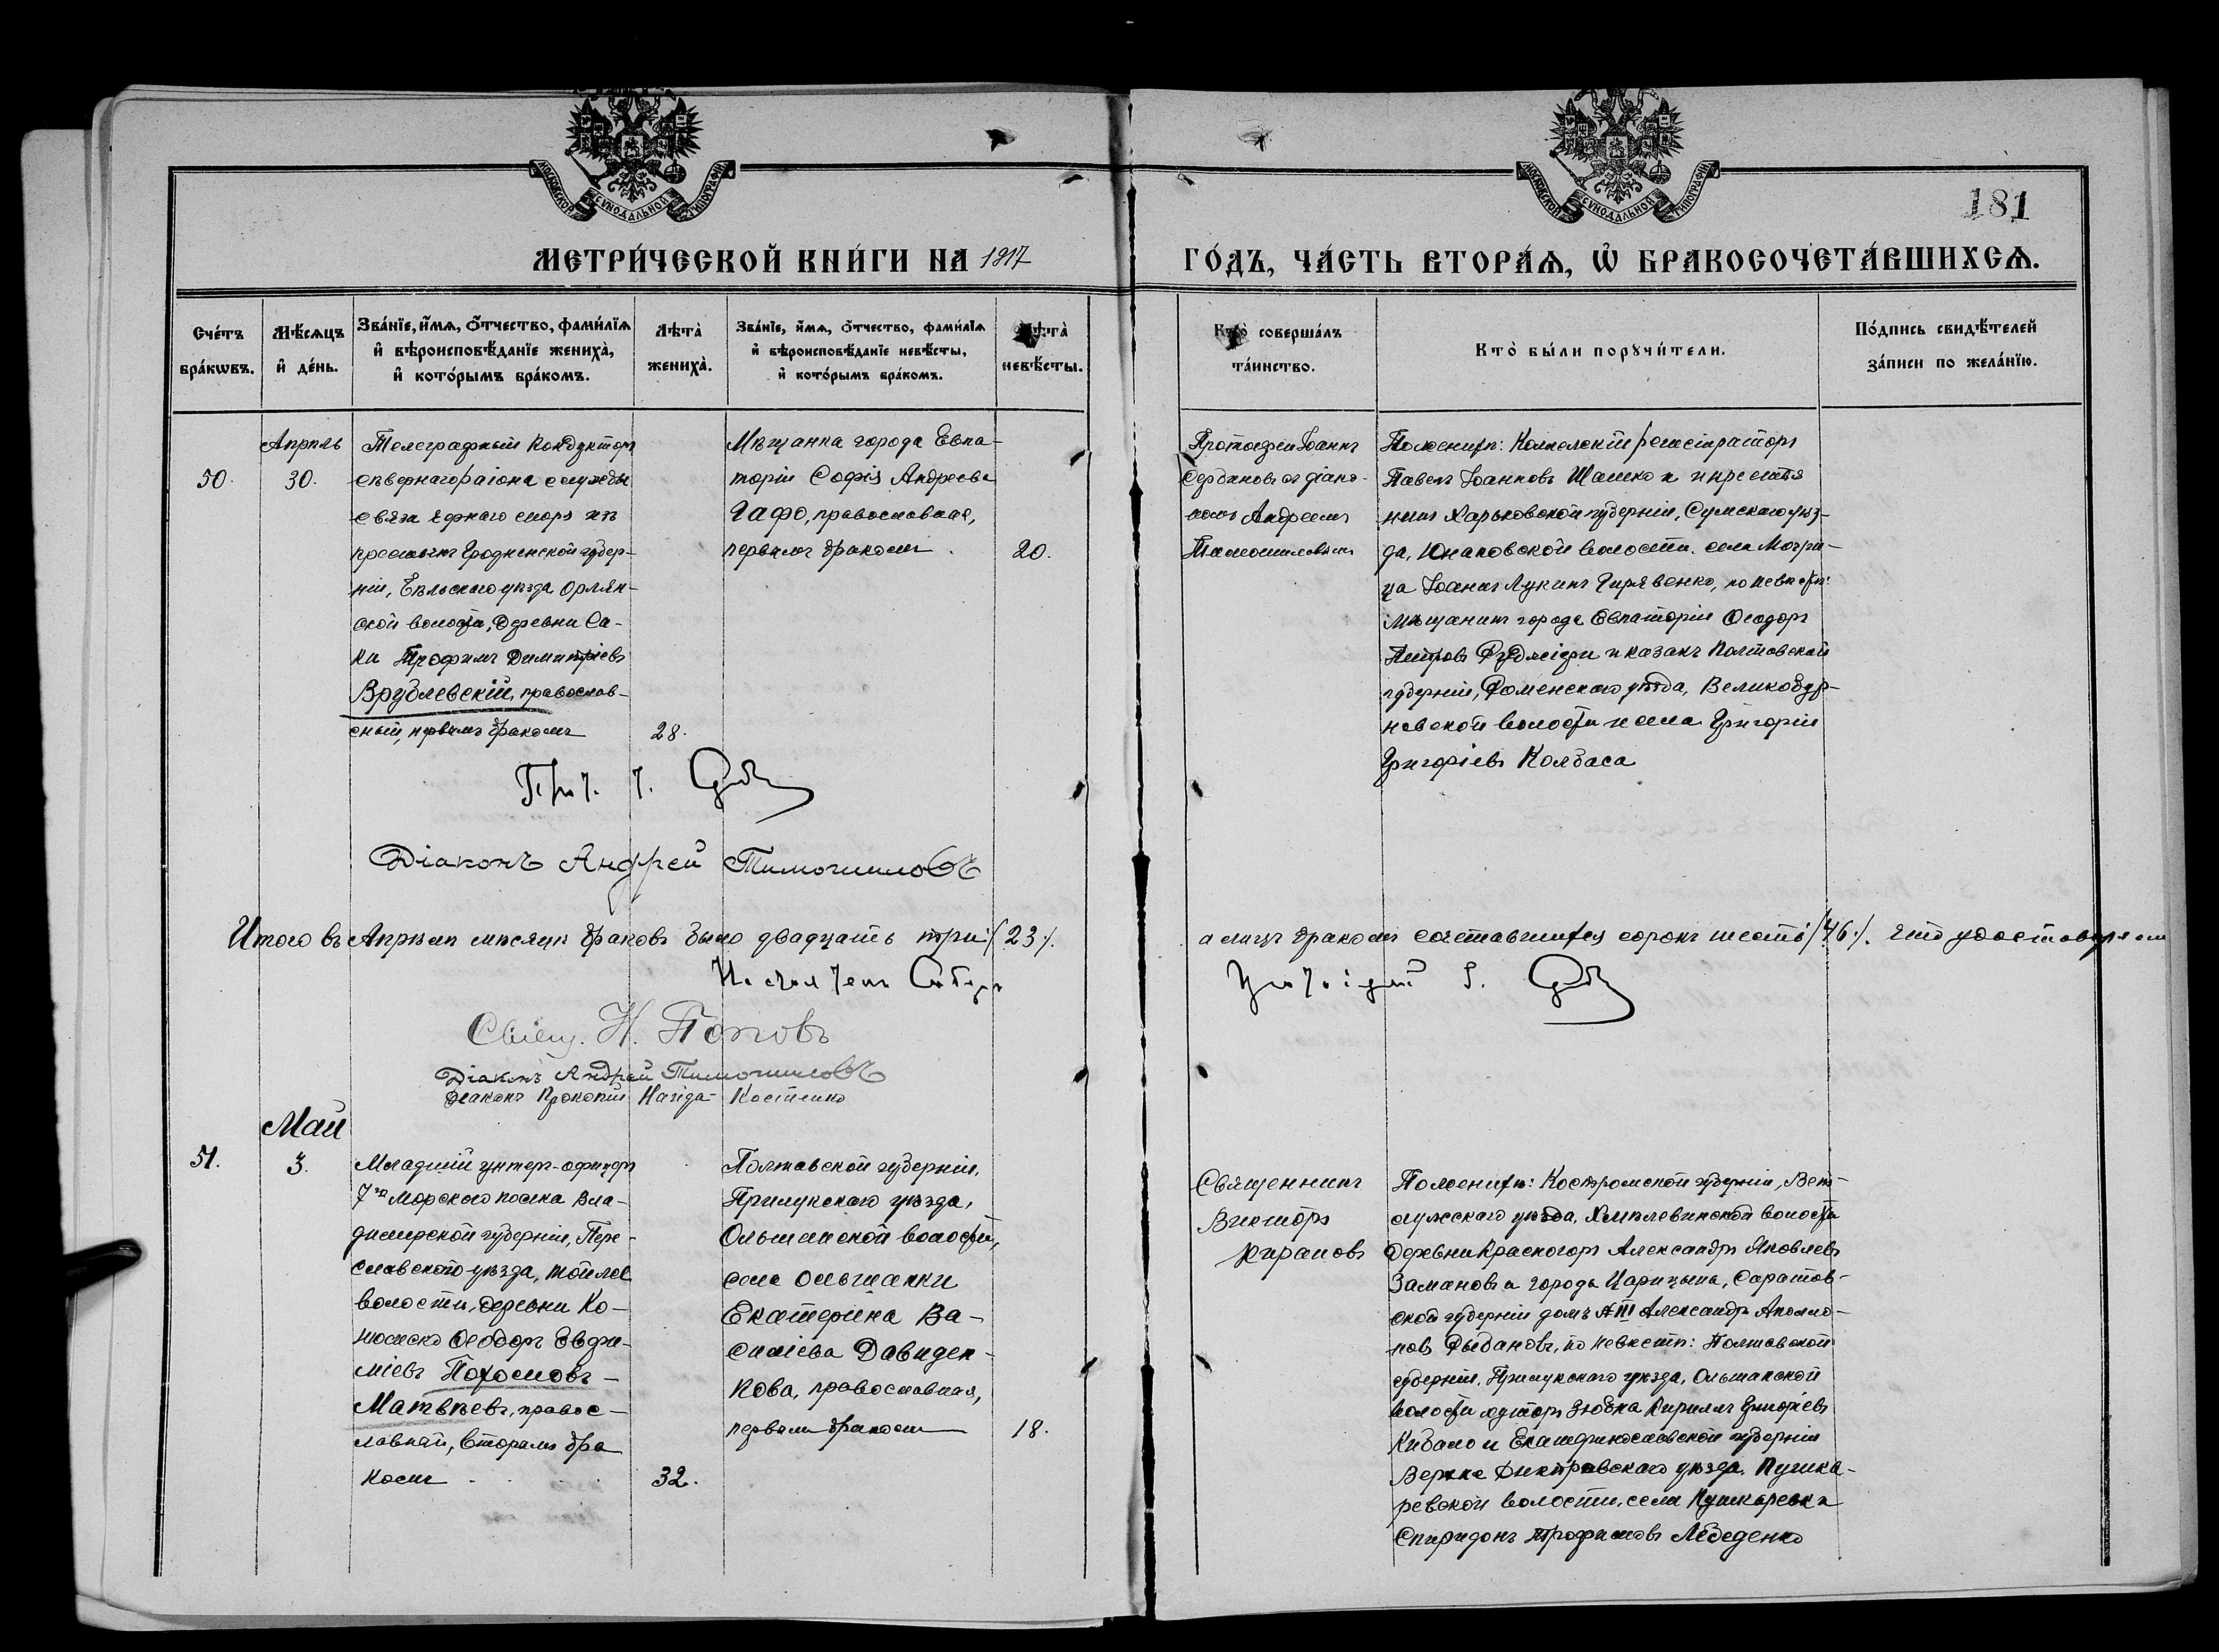 МОСКОВСКОЙ СѴНОДАЛЬНОЙ ТИПОГРАФІИ
МОСКОВСКОЙ СѴНОДАЛЬНОЙ ТИПОГРАФІИ
181
МЕТРИ́ЧЕСКОЙ КНИ́ГИ НА 1917
ГО́ДЪ, ЧА́СТЬ ВТОРА́Ѧ, Ѡ҆ БРАКОСОЧЕТА́ВШИХСѦ.
Сче́тъ бра́кѡвъ.
Мѣ́сѧцъ и҆ де́нь.
Зва́нїе, и҆́мѧ, ѻ҆́тчество, фами́лїѧ
и҆ вѣроисповѣ́данїе жениха̀,
и҆ кото́рымъ бра́комъ.
Лѣта̀ жениха̀.
Зва́нїе, и҆́мѧ, ѻ҆́тчество, фами́лїѧ
и҆ вѣроисповѣ́данїе невѣ́сты,
и҆ кото́рымъ бра́комъ.
Лѣта̀ невѣ́сты.
Кто̀ соверша́лъ
та́инство.
Кто̀ бы́ли порꙋчи́тели.
По́дпись свидѣ́телей
за́писи по жела́нїю.
Апрѣль
50.
30.
Телеграфный Кондукторъ
сѣвернаго раіона службы
связи Чернаго моря изъ
крестьянъ Гродненской губер-
ніи, Бѣльскаго уѣзда Орлян-
ской волости, деревни Са-
ки Трофимъ Димитріевъ
Врублевскій, православ-
ный, первымъ бракомъ
28.
Мѣщанка города Евпа-
торіи Софія Андреева
Гафо, православная,
первымъ бракомъ
20.
Протоіерей Іоаннъ
Сербиновъ съ діако-
номъ Андреемъ
Тимошиловымъ
По женихѣ: Коллежскій регистраторъ
Павелъ Іоанновъ Шашко и крестья
нинъ Харьковской губерніи, Сумскаго уѣз-
да, Юнаковской волости села Могри-
ца Іоаннъ Лукинъ Гирявенко, по невѣстѣ:
мѣщанинъ города Евпаторіи Ѳеодоръ
Петровъ и казакъ Полтавской
губерніи, Роменскаго уѣзда, Великобуб-
невской волости и села Григорій
Григоріевъ Колбаса
Прот. І. Серб
Діаконъ Андрей Тимошиловъ
Итого въ Апрѣлѣ мѣсяцѣ браковъ было двадцать три /23/.
а лицъ бракомъ сочетавшихся сорокъ шесть /46/. что удостовѣряемъ
Настоятель Собора
Протоіерей І. Серб
Свящ. Н. Поповъ
Діаконъ Андрей Тимошиловъ
Діаконъ Прокопій Нагіда-Костенко
Май
51.
3.
Младшій унтеръ-офицеръ
7го Морского полка Вла-
димірской губерніи, Пере-
славскаго уѣзда,
волости, деревни Ко-
Ѳеодоръ Евфи-
міевъ Пофомовъ-
Матвѣевъ, правос-
лавный, вторымъ бра
комъ
32.
Полтавской губерніи,
Прилукскаго уѣзда,
Ольшанской волости,
села Ольшанки
Екатерина Ва-
силіева Давиден-
кова, православная,
первымъ бракомъ
18.
Священникъ
Викторъ
Кирановъ
По женихѣ: Костромской губерніи, Вет-
лужскаго уѣзда, Хмѣлевинской волости
деревни Красногоръ Александръ Яковлевъ
Замановъ и города Царицына, Саратов-
ской губерніи домъ Александръ Аполло-
новъ Рыбановъ, по невѣстѣ: Полтавской
губерніи, Прилукскаго уѣзда, Ольшанской
волости хуторъ Зюбка Кириллъ Григоріевъ
Кибало и Екатеринославской губерніи
Верхне Днѣпровскаго уѣзда, Пушка-
ревской волости, села Пушкаревка
Спиридонъ Трофимовъ Лебеденко